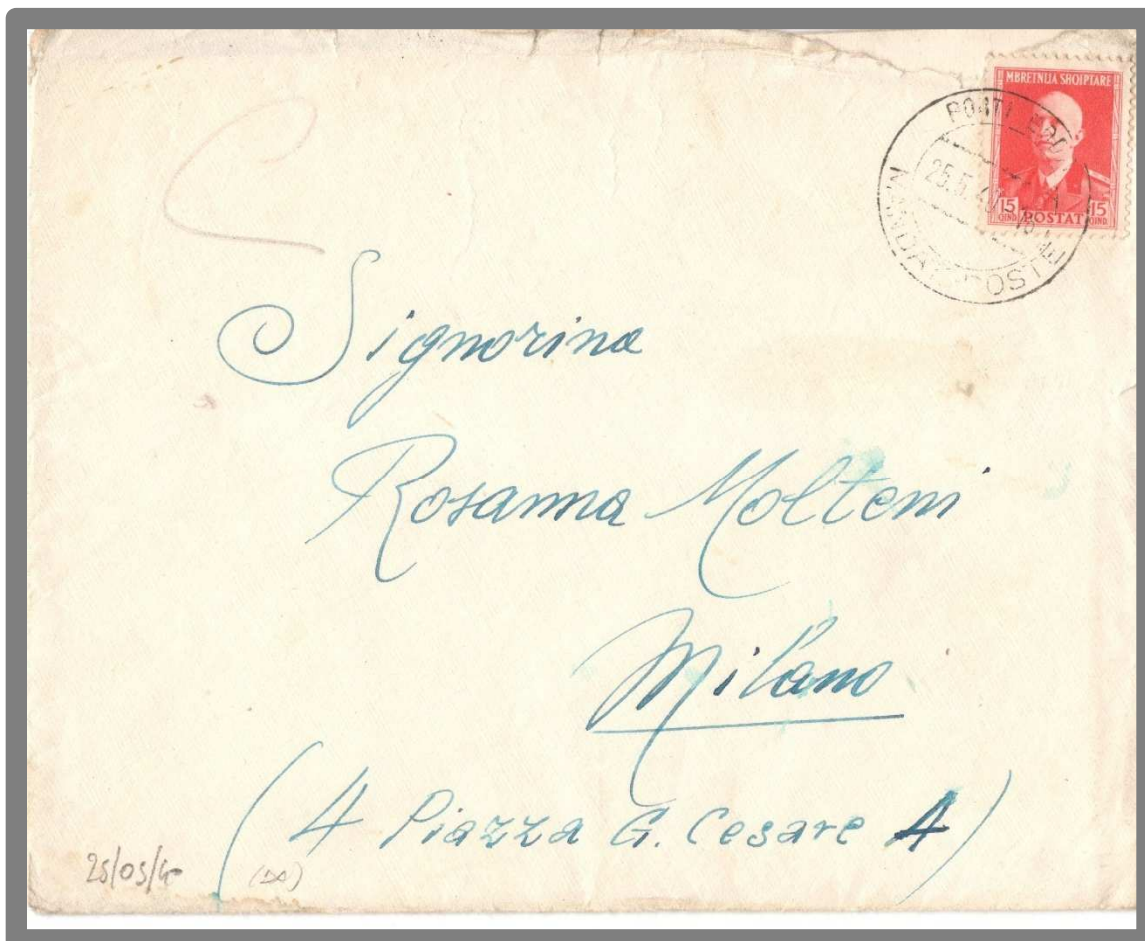 MBRETNIJA SHQIPTARE
15 QIND POSTAT 15 QIND
25.5.40
Signorina
Rosanna Molteni
Milano
(4 Piazza G. Cesare 4)
25/05/40